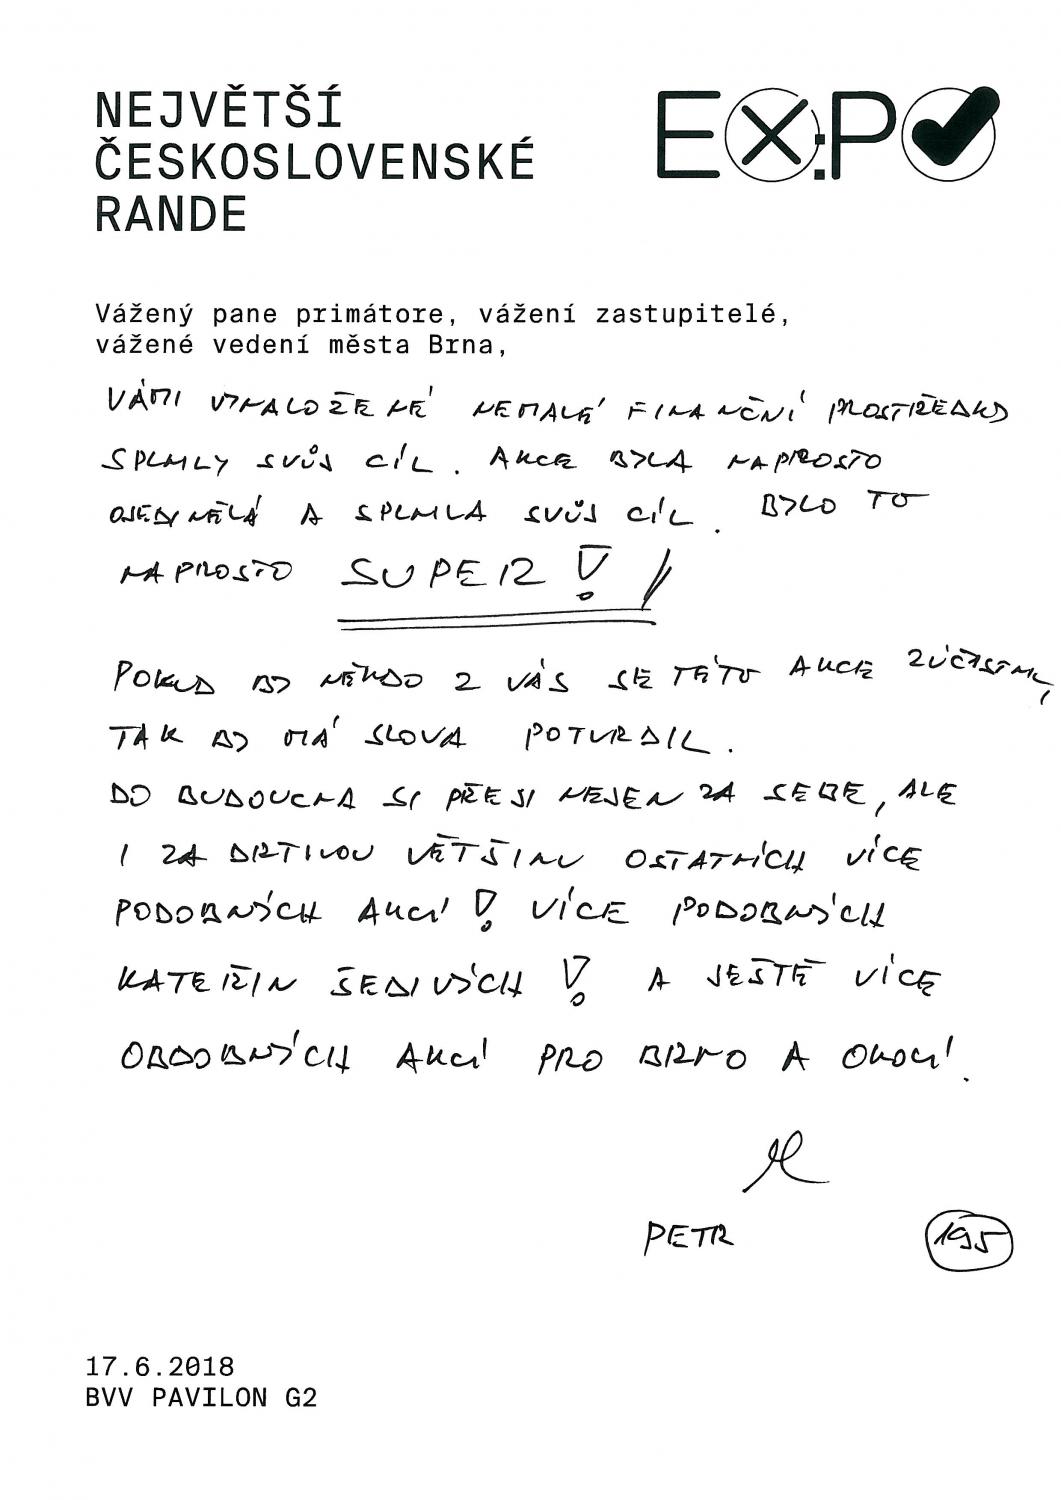 NEJVĚTŠÍ
ČESKOSLOVENSKÉ
RANDE
EX:PO
Vážený pane primátore, vážení zastupitelé,
vážené vedení města Brna,
VÁMI VYNALOŽENÉ NEMALÉ FINANČNÍ PROSTŘEDKY
SPLNILY SVŮJ CÍL. AKCE BYLA NAPROSTO
OJEDINĚLÁ A SPLNILA SVŮJ CÍL. BYLO TO
NAPROSTO SUPER!!
POKUD BY NĚKDO Z VÁS SE TÉTO AKCE ZÚČASTNIL,
TAK BY MÁ SLOVA POTVRDIL.
DO BUDOUCNA SI PŘEJI NEJEN ZA SEBE, ALE
I ZA DRTIVOU VĚTŠINU OSTATNÍCH VÍCE
PODOBNÝCH AKCÍ! VÍCE PODOBNÝCH
KATEŘIN ŠEDIVÝCH! A JEŠTĚ VÍCE
OBDOBNÝCH AKCÍ PRO BRNO A OKOLÍ.
PETR
195
17.6.2018
BVV PAVILON G2